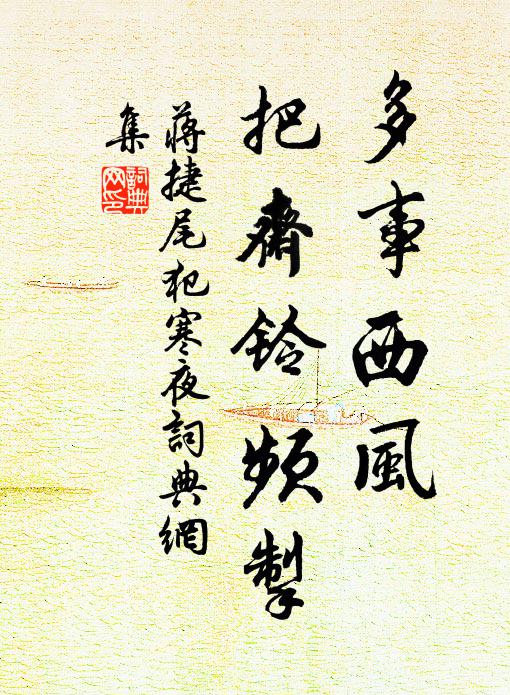 多事西風
把齋鈴頻掣
蔣捷尾犯寒夜詞典網
集
詞典網印